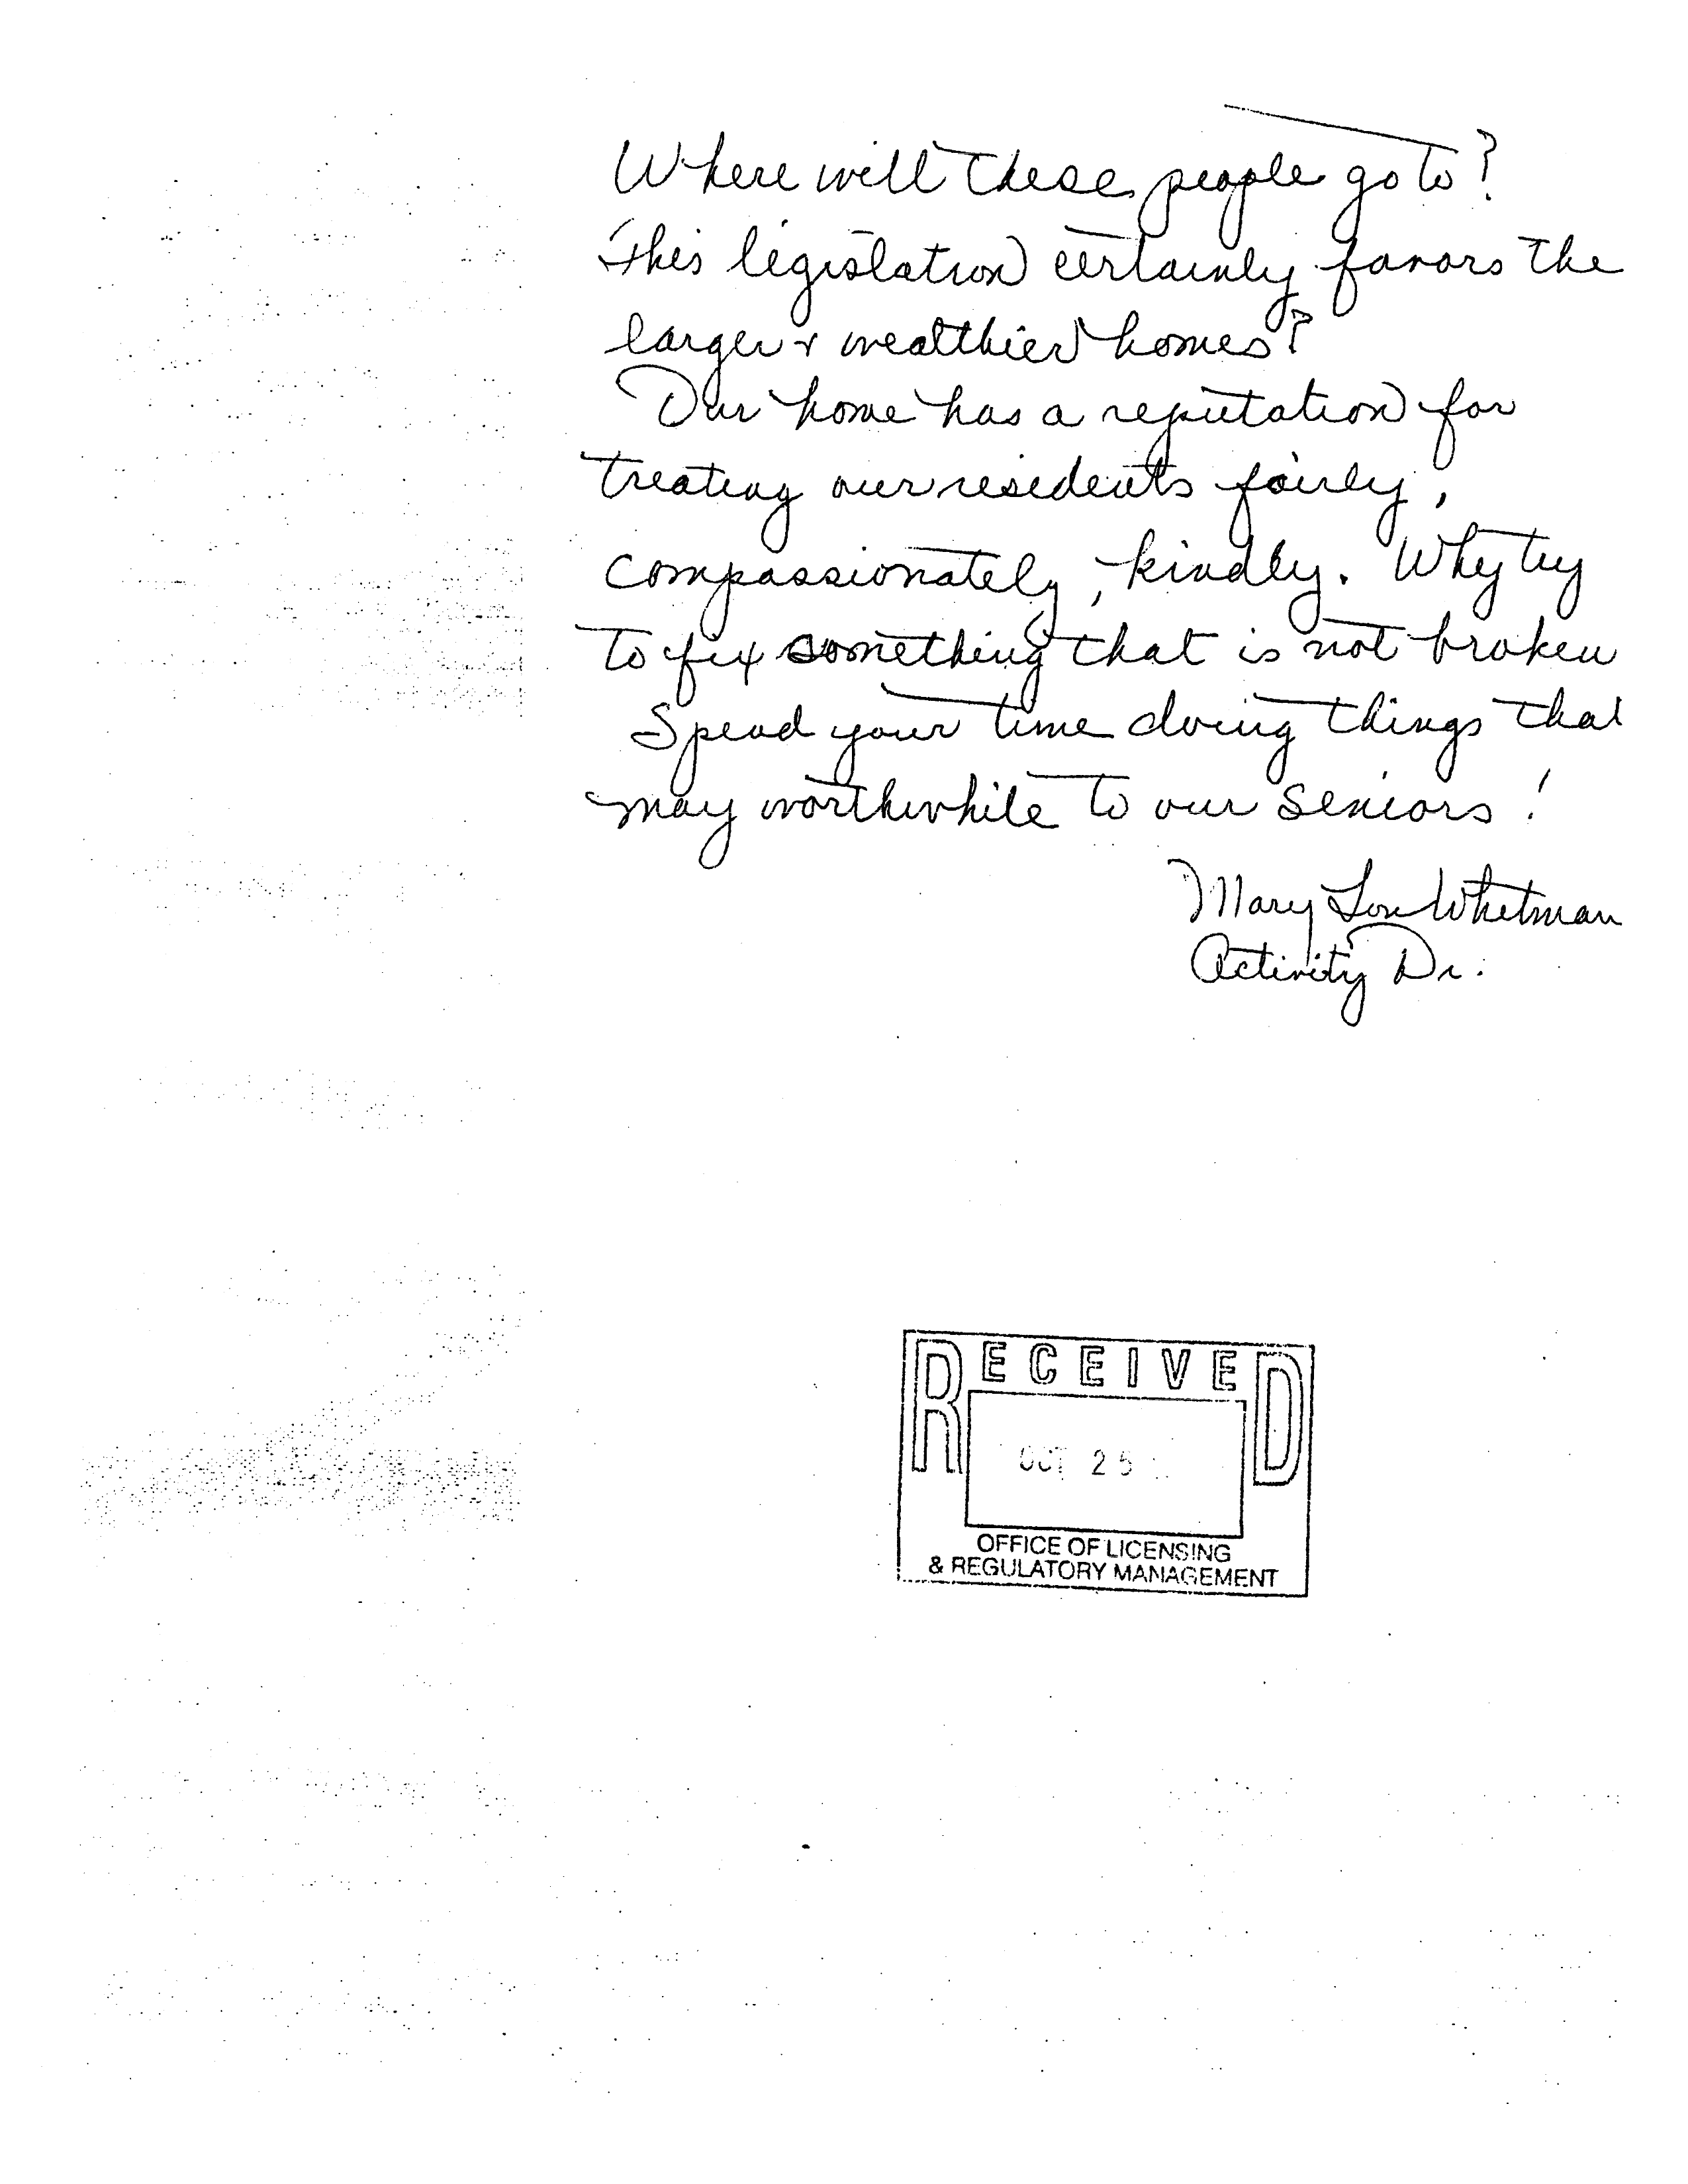 Where will these people go to?
This legislation certainly favors the
larger & wealthier homes?
Our home has a reputation for
treating our residents fairly,
compassionately, kindly. Why try
to fix something that is not broken
Spend your time doing things that
may worthwhile to our seniors!
Mary Lou Whetman
Activity Dr.
RECEIVED
OCT 25
OFFICE OF LICENSING
& REGULATORY MANAGEMENT